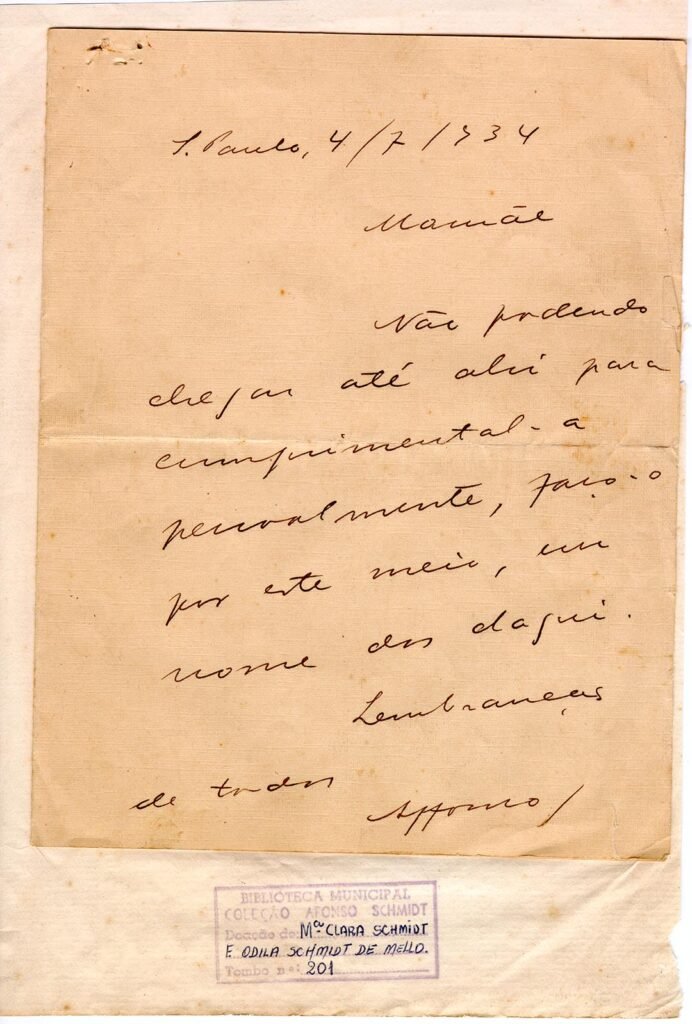 S. Paulo, 4/7/934
Mamãe
Não podendo
chegar até ahi para
cumprimental-a
pessoalmente, faço-o
por este meio, em
nome dos daqui.
Lembranças
de todos
Affonso
BIBLIOTECA MUNICIPAL
COLEÇÃO AFONSO SCHMIDT
Doação de Mª CLARA SCHMIDT
E ODILA SCHMIDT DE MELLO.
Tombo nº: 201